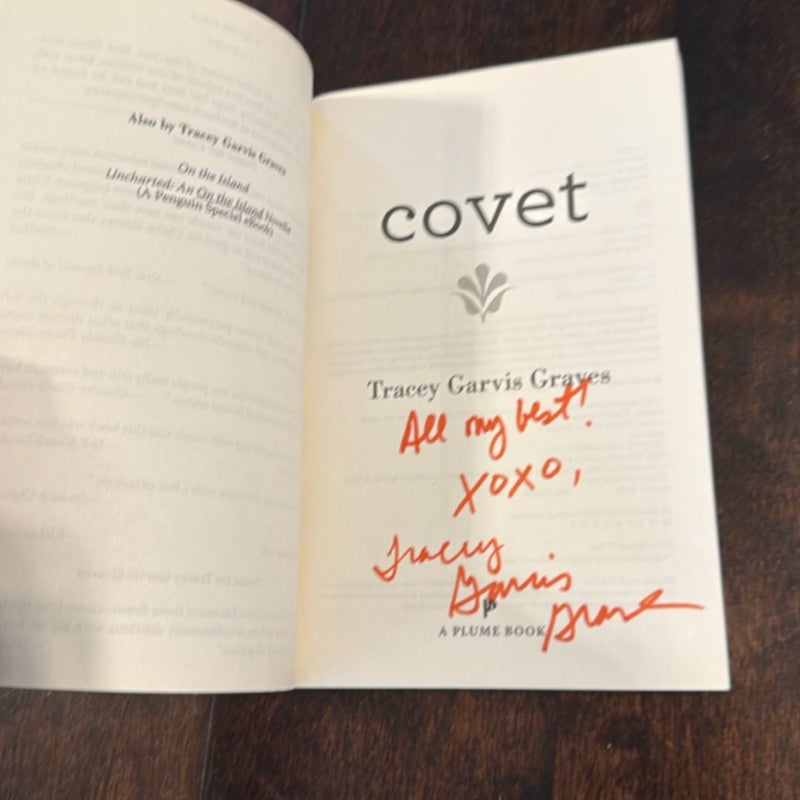 Also by Tracey Garvis Graves
On the Island
Uncharted: An On the Island Novella
(A Penguin Special eBook)
covet
Tracey Garvis Graves
All my best!
XOXO,
Tracey
Garvis
Graves
A PLUME BOOK